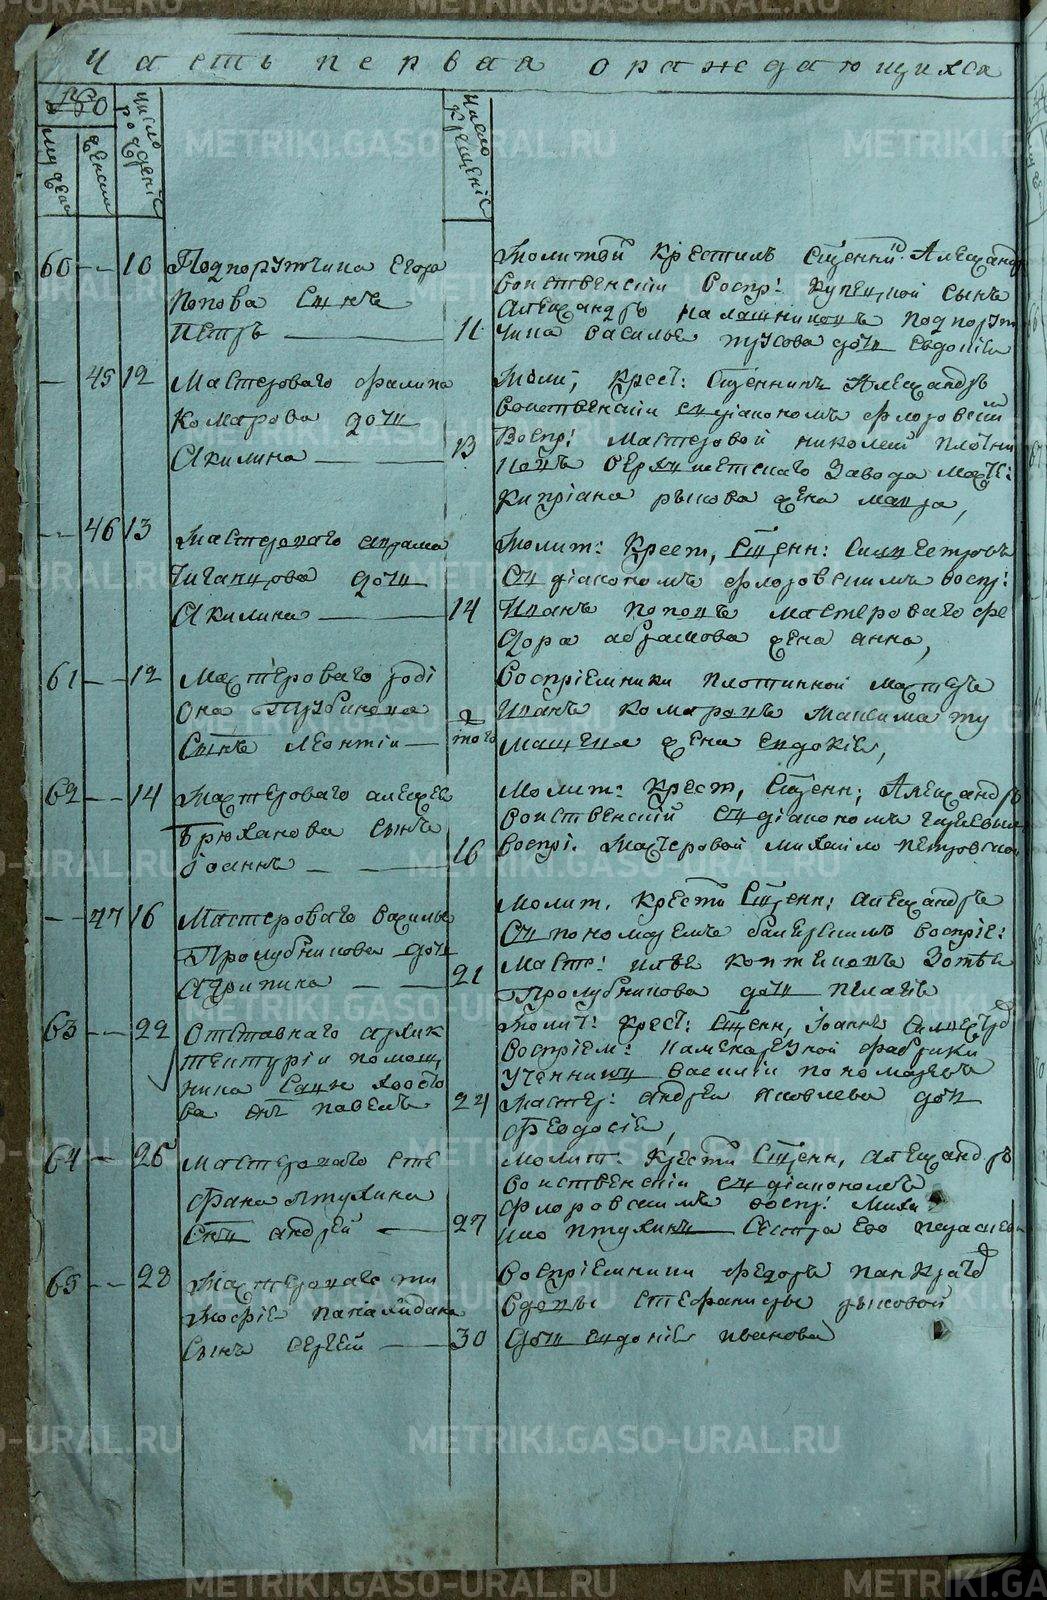 Часть первая ораждающихся
мужеска
женска
число рожденіе
Число Крещеніе
60 10 Подпорутчика Егора
Попова Сынъ
Петръ 11
Молитвой Крестилъ Священникъ Александръ
Воинственскіи Воспр: Купецкой сынъ
Александръ Калашниковъ подпорут
чика василья дочи Евдокіѧ
45 12 Мастероваго Филипа
Комарова дочи
Акилина 13
Моли, Крест: Священникъ Александръ
Воинственскіи съ діакономъ Флоровскій
Воспр: Мастеровой николай плотни
ковъ Верхъ исетскаго Завода маст:
Кипріана рыкова жена марѳа,
46 13 Мастероваго аврама
Чиганцова дочи
Акилина 14
Молит: Крест, Свѧщенн: Симъ Петровъ
Съ діакономъ Флоровскимъ воспр:
Иванъ поповъ мастероваго Фе
дора абрамова жена анна,
61 12 Мастероваго роді
Она Трубинова
Сынъ леонтіи того
Воспріемники плотинной мастеръ
Иванъ Комаровъ Максима ту
мащева жена евдокіѧ,
62 14 Мастероваго алексея
Брюханова сынъ
Іоаннъ 16
Молит: Крест, Свѧщенн; Александръ
Воинственскій съ діакономъ
Воспрі. Мастеровой михаило петровской
47 16 Мастероваго василья
Пролубникова дочи
Агрипина 21
Молит. Крести Свѧщенн; александръ
Съ пономаремъ воспріе:
Масте: илья коптеловъ Зотѣя
Пролубникова дочи пелагіѧ
63 22 Отставнаго архик
тектуріи помощ
ника Сынъ
ва павелъ 24
Молит: Крест: Свѧщенн, Іоаннъ Силвестровъ
Воспріем: Камѣкорезной фабрики
Ученникъ василіи пономаревъ
Мастер: андрея яковлева дочь
Феодосіѧ,
64 26 Мастероваго сте
фана птухина
Снъ андрей 27
Молит: Крести Свѧщенн, александръ
Воинственскіи съ діакономъ
Флоровскимъ воспр: Михаи
ло птухинъ Сестра его параскевиѧ
65 28 Мастероваго ти
мофѣѧ
Сынъ сергей 30
Воспріемники Федоръ панкрат
Вдовы Стефаниды рыковой
дочи евдокіѧ иванова
METRIKI.GASO-URAL.RU